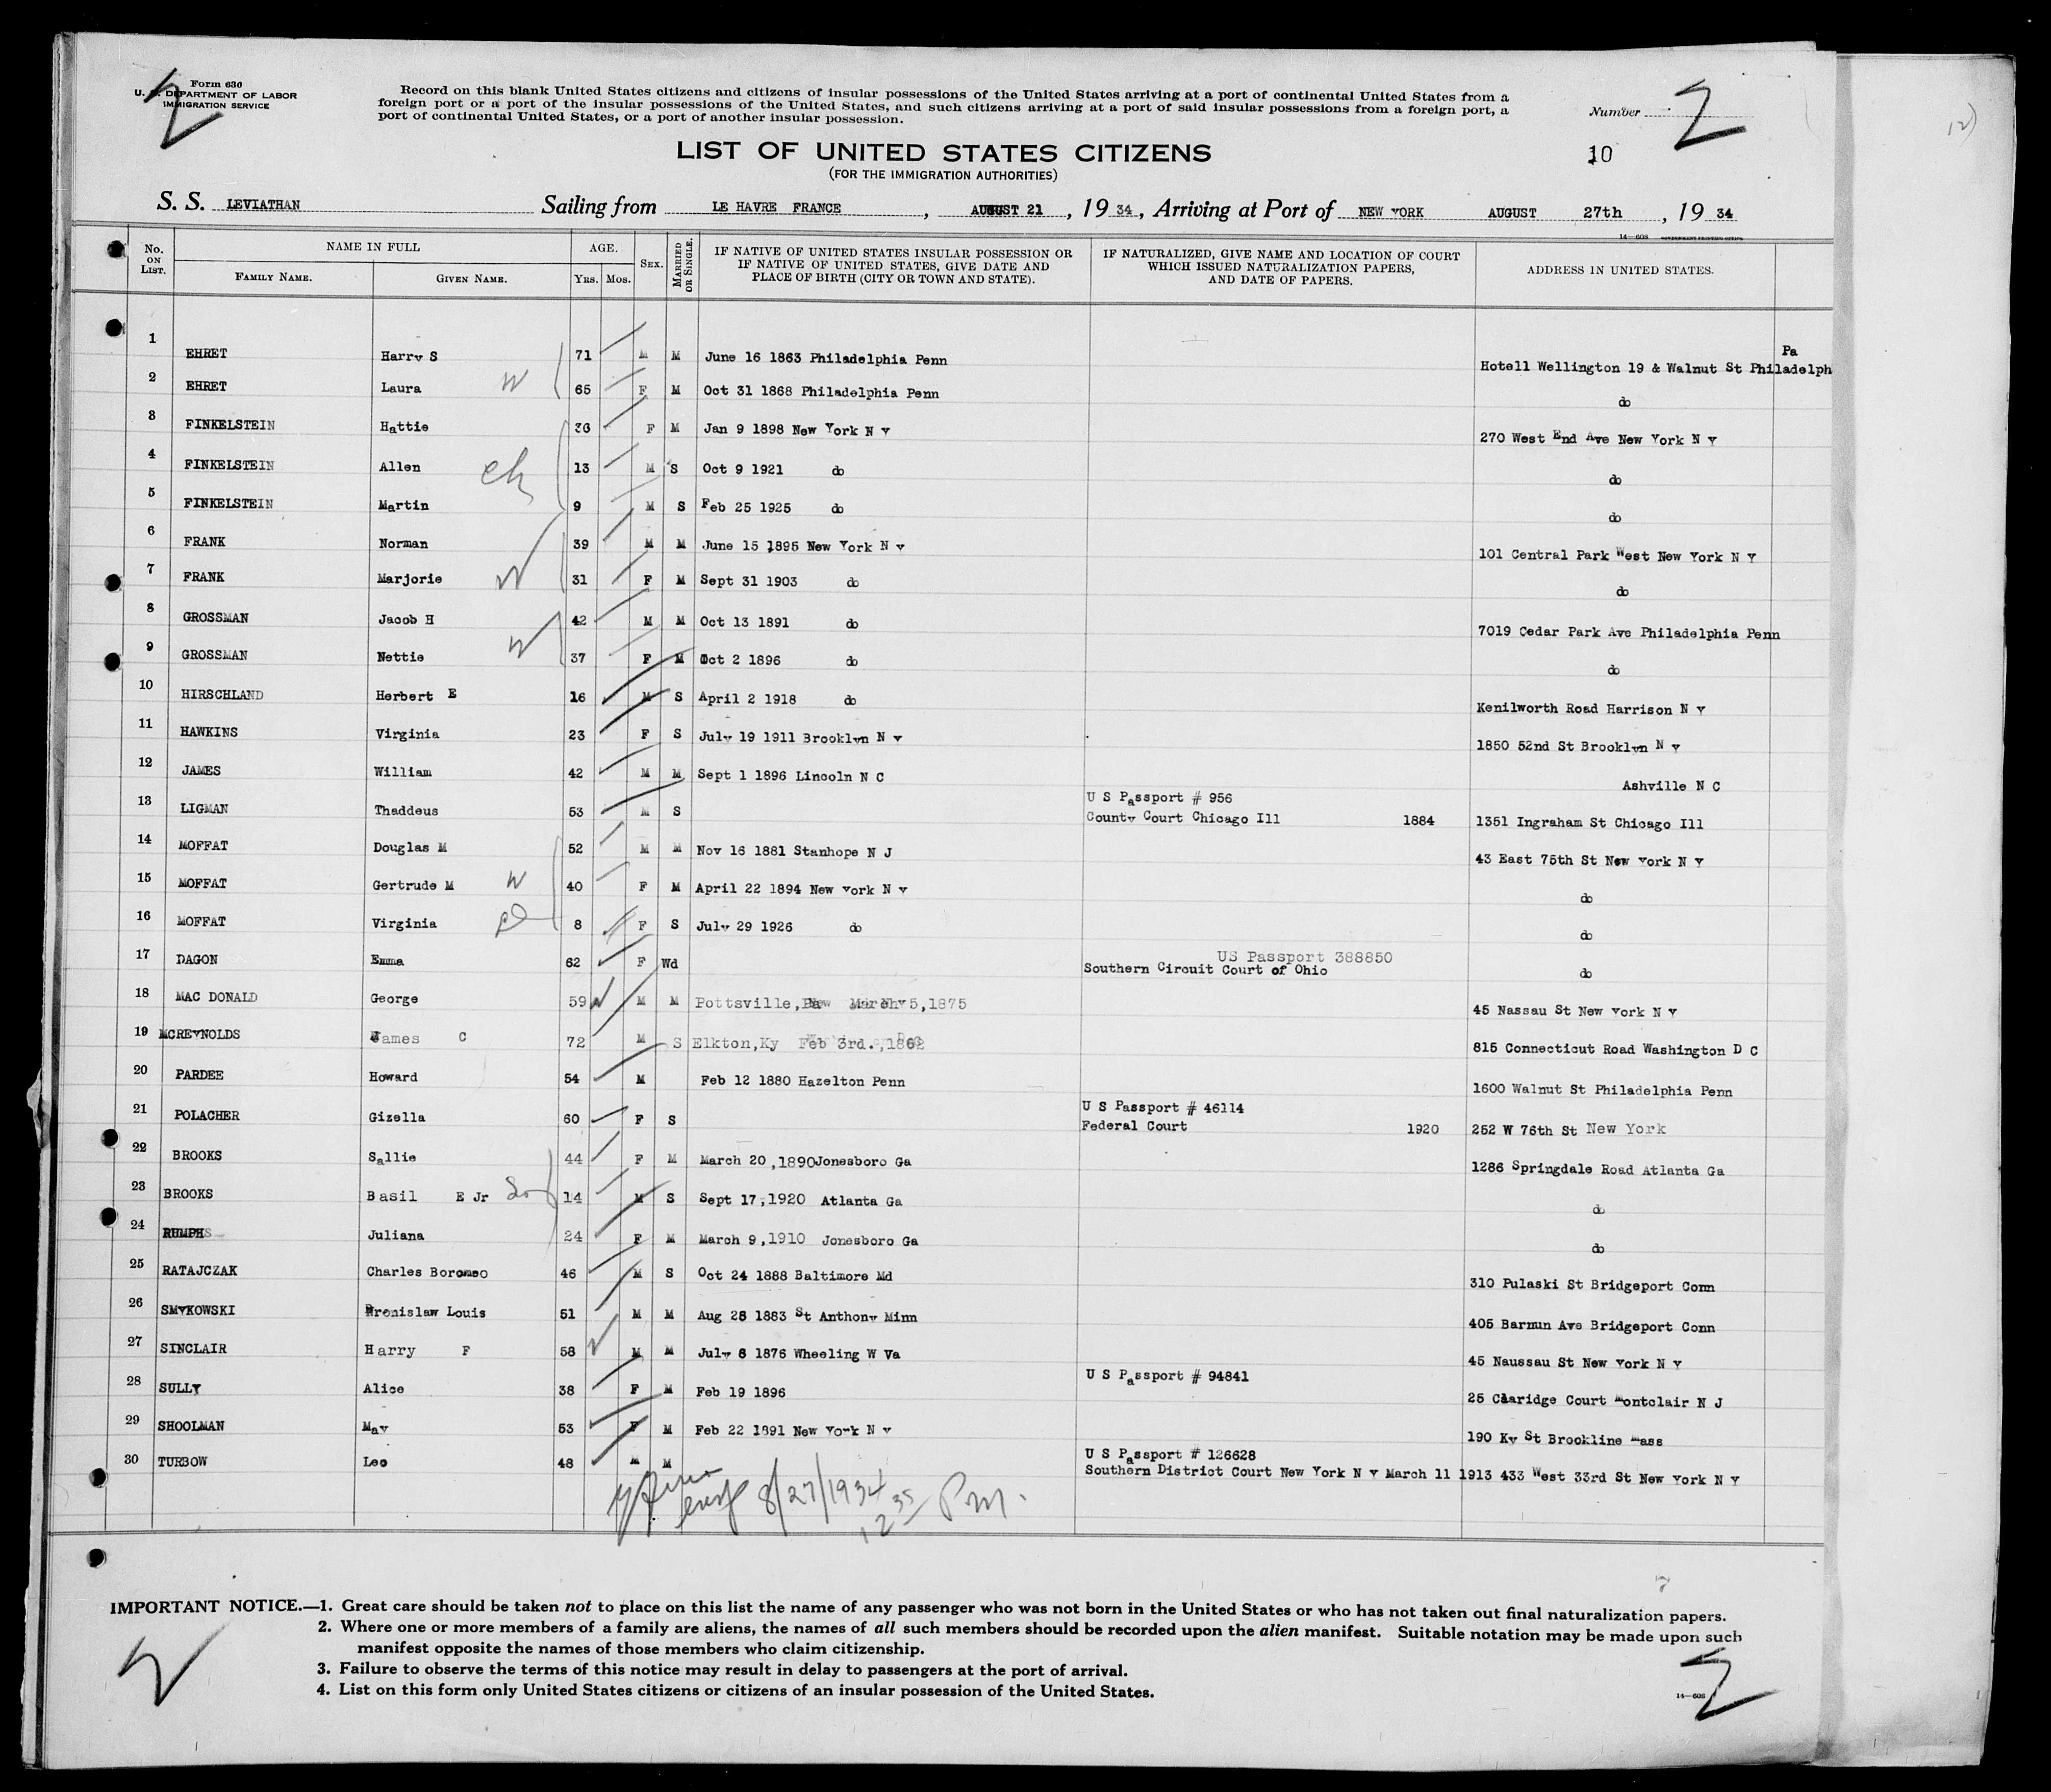 Form 630
U. S. DEPARTMENT OF LABOR
IMMIGRATION SERVICE
2
Record on this blank United States citizens and citizens of insular possessions of the United States arriving at a port of continental United States from a
foreign port or a port of the insular possessions of the United States, and such citizens arriving at a port of said insular possessions from a foreign port, a
port of continental United States, or a port of another insular possession.
Number 2
12)
LIST OF UNITED STATES CITIZENS
(FOR THE IMMIGRATION AUTHORITIES)
10
S. S. LEVIATHAN Sailing from LE HAVRE FRANCE, AUGUST 21, 19 34, Arriving at Port of NEW YORK AUGUST 27th, 19 34
14—608
No. ON LIST. NAME IN FULL FAMILY NAME. GIVEN NAME. AGE. YRS. MOS. SEX. MARRIED OR SINGLE. IF NATIVE OF UNITED STATES INSULAR POSSESSION OR IF NATIVE OF UNITED STATES, GIVE DATE AND PLACE OF BIRTH (CITY OR TOWN AND STATE). IF NATURALIZED, GIVE NAME AND LOCATION OF COURT WHICH ISSUED NATURALIZATION PAPERS, AND DATE OF PAPERS. ADDRESS IN UNITED STATES.
1 EHRET Harry S 71 M M June 16 1863 Philadelphia Penn Hotell Wellington 19 & Walnut St Philadelph Pa
2 EHRET Laura W 65 F M Oct 31 1868 Philadelphia Penn do
3 FINKELSTEIN Hattie 36 F M Jan 9 1898 New York N Y 270 West End Ave New York N Y
4 FINKELSTEIN Allen ch 13 M S Oct 9 1921 do do
5 FINKELSTEIN Martin 9 M S Feb 25 1925 do do
6 FRANK Norman 39 M M June 15 1895 New York N Y 101 Central Park West New York N Y
7 FRANK Marjorie W 31 F M Sept 31 1903 do do
8 GROSSMAN Jacob H 42 M M Oct 13 1891 do 7019 Cedar Park Ave Philadelphia Penn
9 GROSSMAN Nettie W 37 F M Oct 2 1896 do do
10 HIRSCHLAND Herbert E 16 M S April 2 1918 do Kenilworth Road Harrison N Y
11 HAWKINS Virginia 23 F S July 19 1911 Brooklyn N Y 1850 52nd St Brooklyn N Y
12 JAMES William 42 M M Sept 1 1896 Lincoln N C Ashville N C
13 LIGMAN Thaddeus 53 M S U S Passport # 956
County Court Chicago Ill 1884 1351 Ingraham St Chicago Ill
14 MOFFAT Douglas M 52 M M Nov 16 1881 Stanhope N J 43 East 75th St New York N Y
15 MOFFAT Gertrude M W 40 F M April 22 1894 New York N Y do
16 MOFFAT Virginia 8 F S July 29 1926 do do
17 DAGON Emma 62 F Wd US Passport 388850
Southern Circuit Court of Ohio do
18 MAC DONALD George 59 M M Pottsville, Pa March 5, 1875 45 Nassau St New York N Y
19 MCREYNOLDS James C 72 M S Elkton, Ky Feb 3rd., 1862 815 Connecticut Road Washington D C
20 PARDEE Howard 54 M Feb 12 1880 Hazelton Penn 1600 Walnut St Philadelphia Penn
21 POLACHER Gizella 60 F S U S Passport # 46114
Federal Court 1920 252 W 76th St New York
22 BROOKS Sallie 44 F M March 20, 1890 Jonesboro Ga 1286 Springdale Road Atlanta Ga
23 BROOKS Basil E Jr 14 M S Sept 17, 1920 Atlanta Ga do
24 RUMPH Juliana 24 F M March 9, 1910 Jonesboro Ga do
25 RATAJCZAK Charles Boromeo 46 M S Oct 24 1888 Baltimore Md 310 Pulaski St Bridgeport Conn
26 SMYKOWSKI Bronislaw Louis 51 M M Aug 28 1883 St Anthony Minn 405 Barnun Ave Bridgeport Conn
27 SINCLAIR Harry F 58 M M July 6 1876 Wheeling W Va 45 Naussau St New York N Y
28 SULLY Alice 38 F M Feb 19 1896 U S Passport # 94841 25 Claridge Court Montclair N J
29 SHOOLMAN May 53 F M Feb 22 1891 New York N Y 190 Ky St Brookline Mass
30 TURBOW Leo 48 M M U S Passport # 126628
Southern District Court New York N Y March 11 1913 433 West 33rd St New York N Y
8/27/1934
12 35 P m.
IMPORTANT NOTICE.—1. Great care should be taken not to place on this list the name of any passenger who was not born in the United States or who has not taken out final naturalization papers.
2. Where one or more members of a family are aliens, the names of all such members should be recorded upon the alien manifest. Suitable notation may be made upon such
manifest opposite the names of those members who claim citizenship.
3. Failure to observe the terms of this notice may result in delay to passengers at the port of arrival.
4. List on this form only United States citizens or citizens of an insular possession of the United States.
2
2
14—608